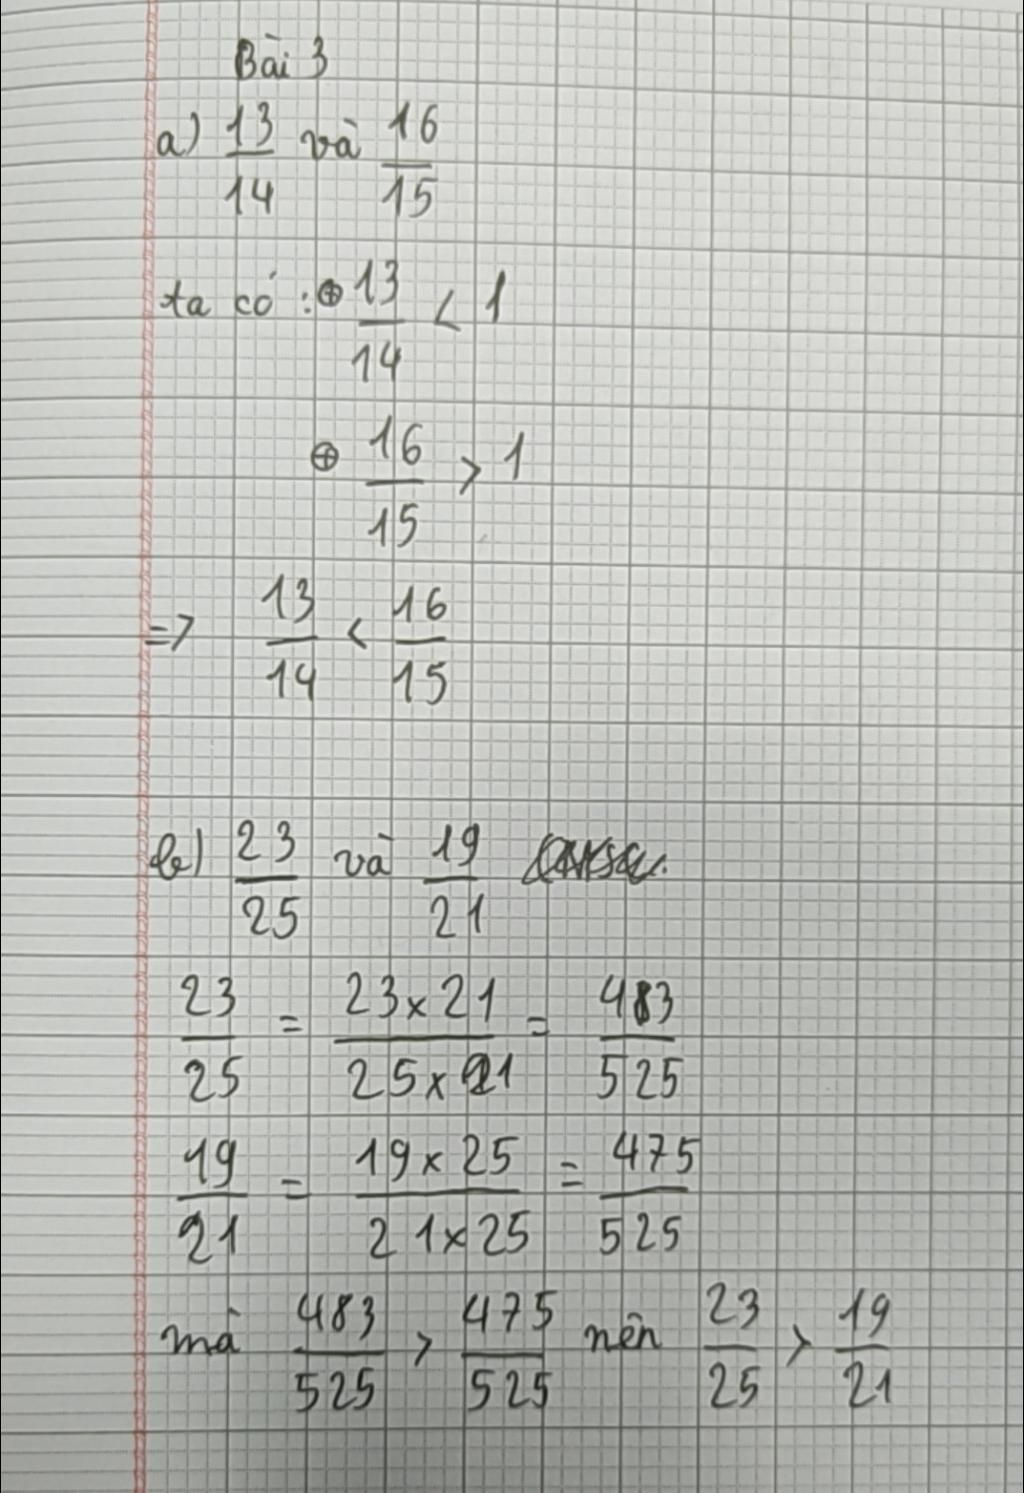 Bài 3
a) 13/14 và 16/15
ta có : ⊕ 13/14 < 1
⊕ 16/15 > 1
=> 13/14 < 16/15
b) 23/25 và 19/21
23/25 = 23x21/25x21 = 483/525
19/21 = 19x25/21x25 = 475/525
mà 483/525 > 475/525 nên 23/25 > 19/21